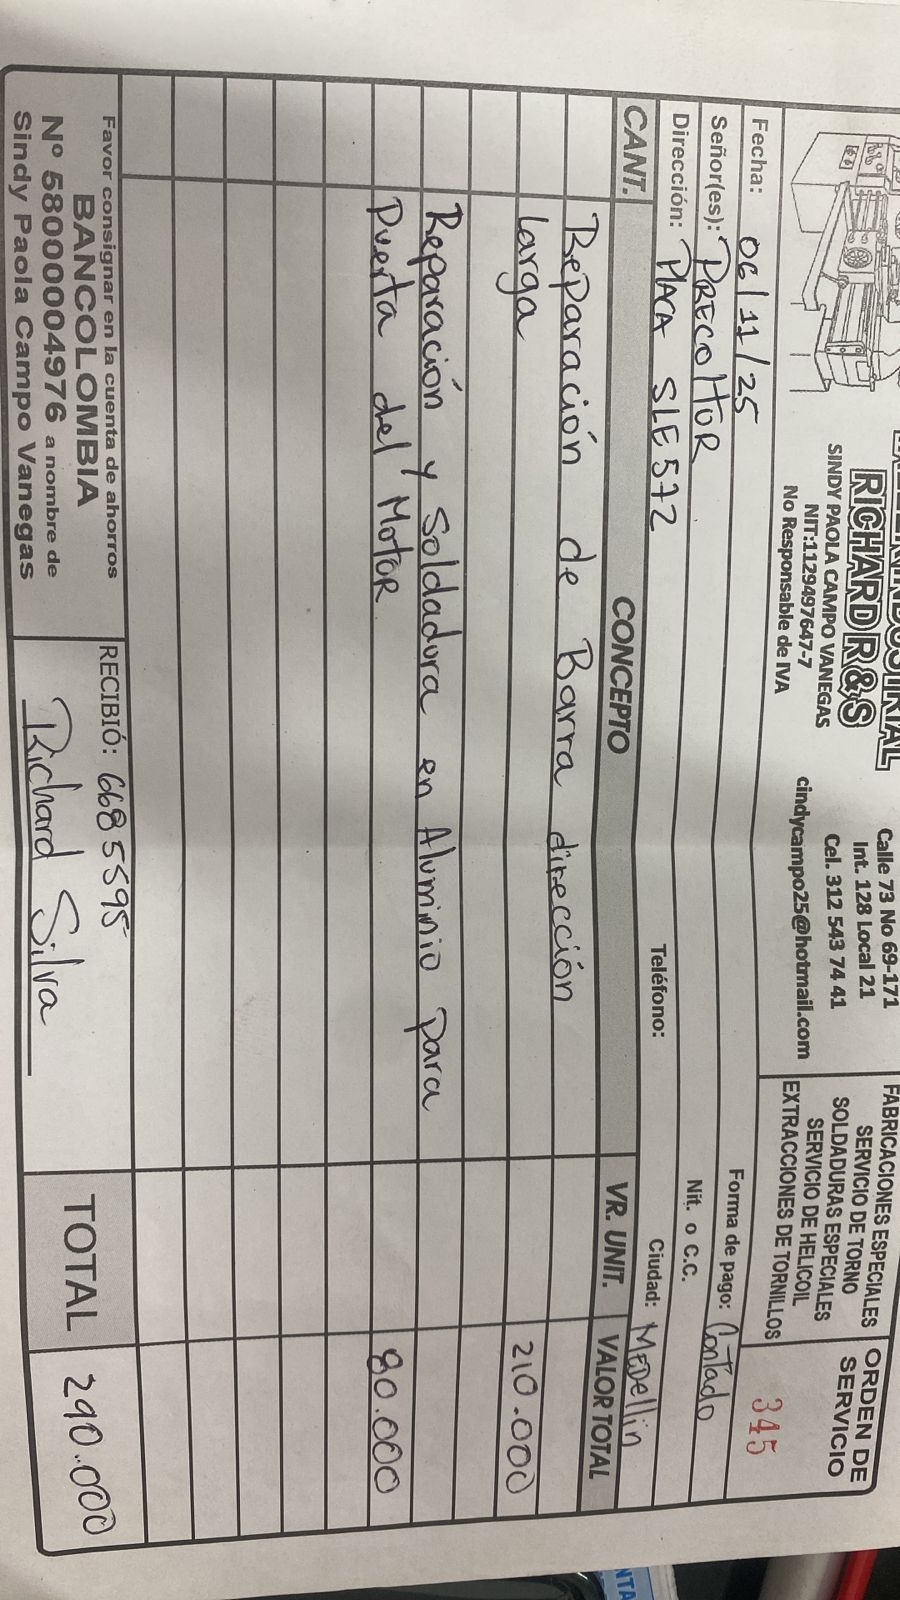 RICHARD R&S
SINDY PAOLA CAMPO VANEGAS
NIT:1129497647-7
No Responsable de IVA
Calle 73 No 69-171
Int. 128 Local 21
Cel. 312 543 74 41
cindycampo25@hotmail.com
FABRICACIONES ESPECIALES
SERVICIO DE TORNO
SOLDADURAS ESPECIALES
SERVICIO DE HELICOIL
EXTRACCIONES DE TORNILLOS
ORDEN DE
SERVICIO
345
Fecha: 06/11/25 Forma de pago: Contado
Señor(es): PRECOLTUR Nit. o C.C.
Dirección: PLACA SLE572 Teléfono: Ciudad: MEDellin
CANT. CONCEPTO VR. UNIT. VALOR TOTAL
Reparación de Barra dirección
larga 210.000
Reparación y Soldadura en Aluminio para
Puerta del MotoR 80.000
Favor consignar en la cuenta de ahorros
BANCOLOMBIA
Nº 58000004976 a nombre de
Sindy Paola Campo Vanegas
RECIBIÓ: 6685595
Richard Silva
TOTAL 290.000